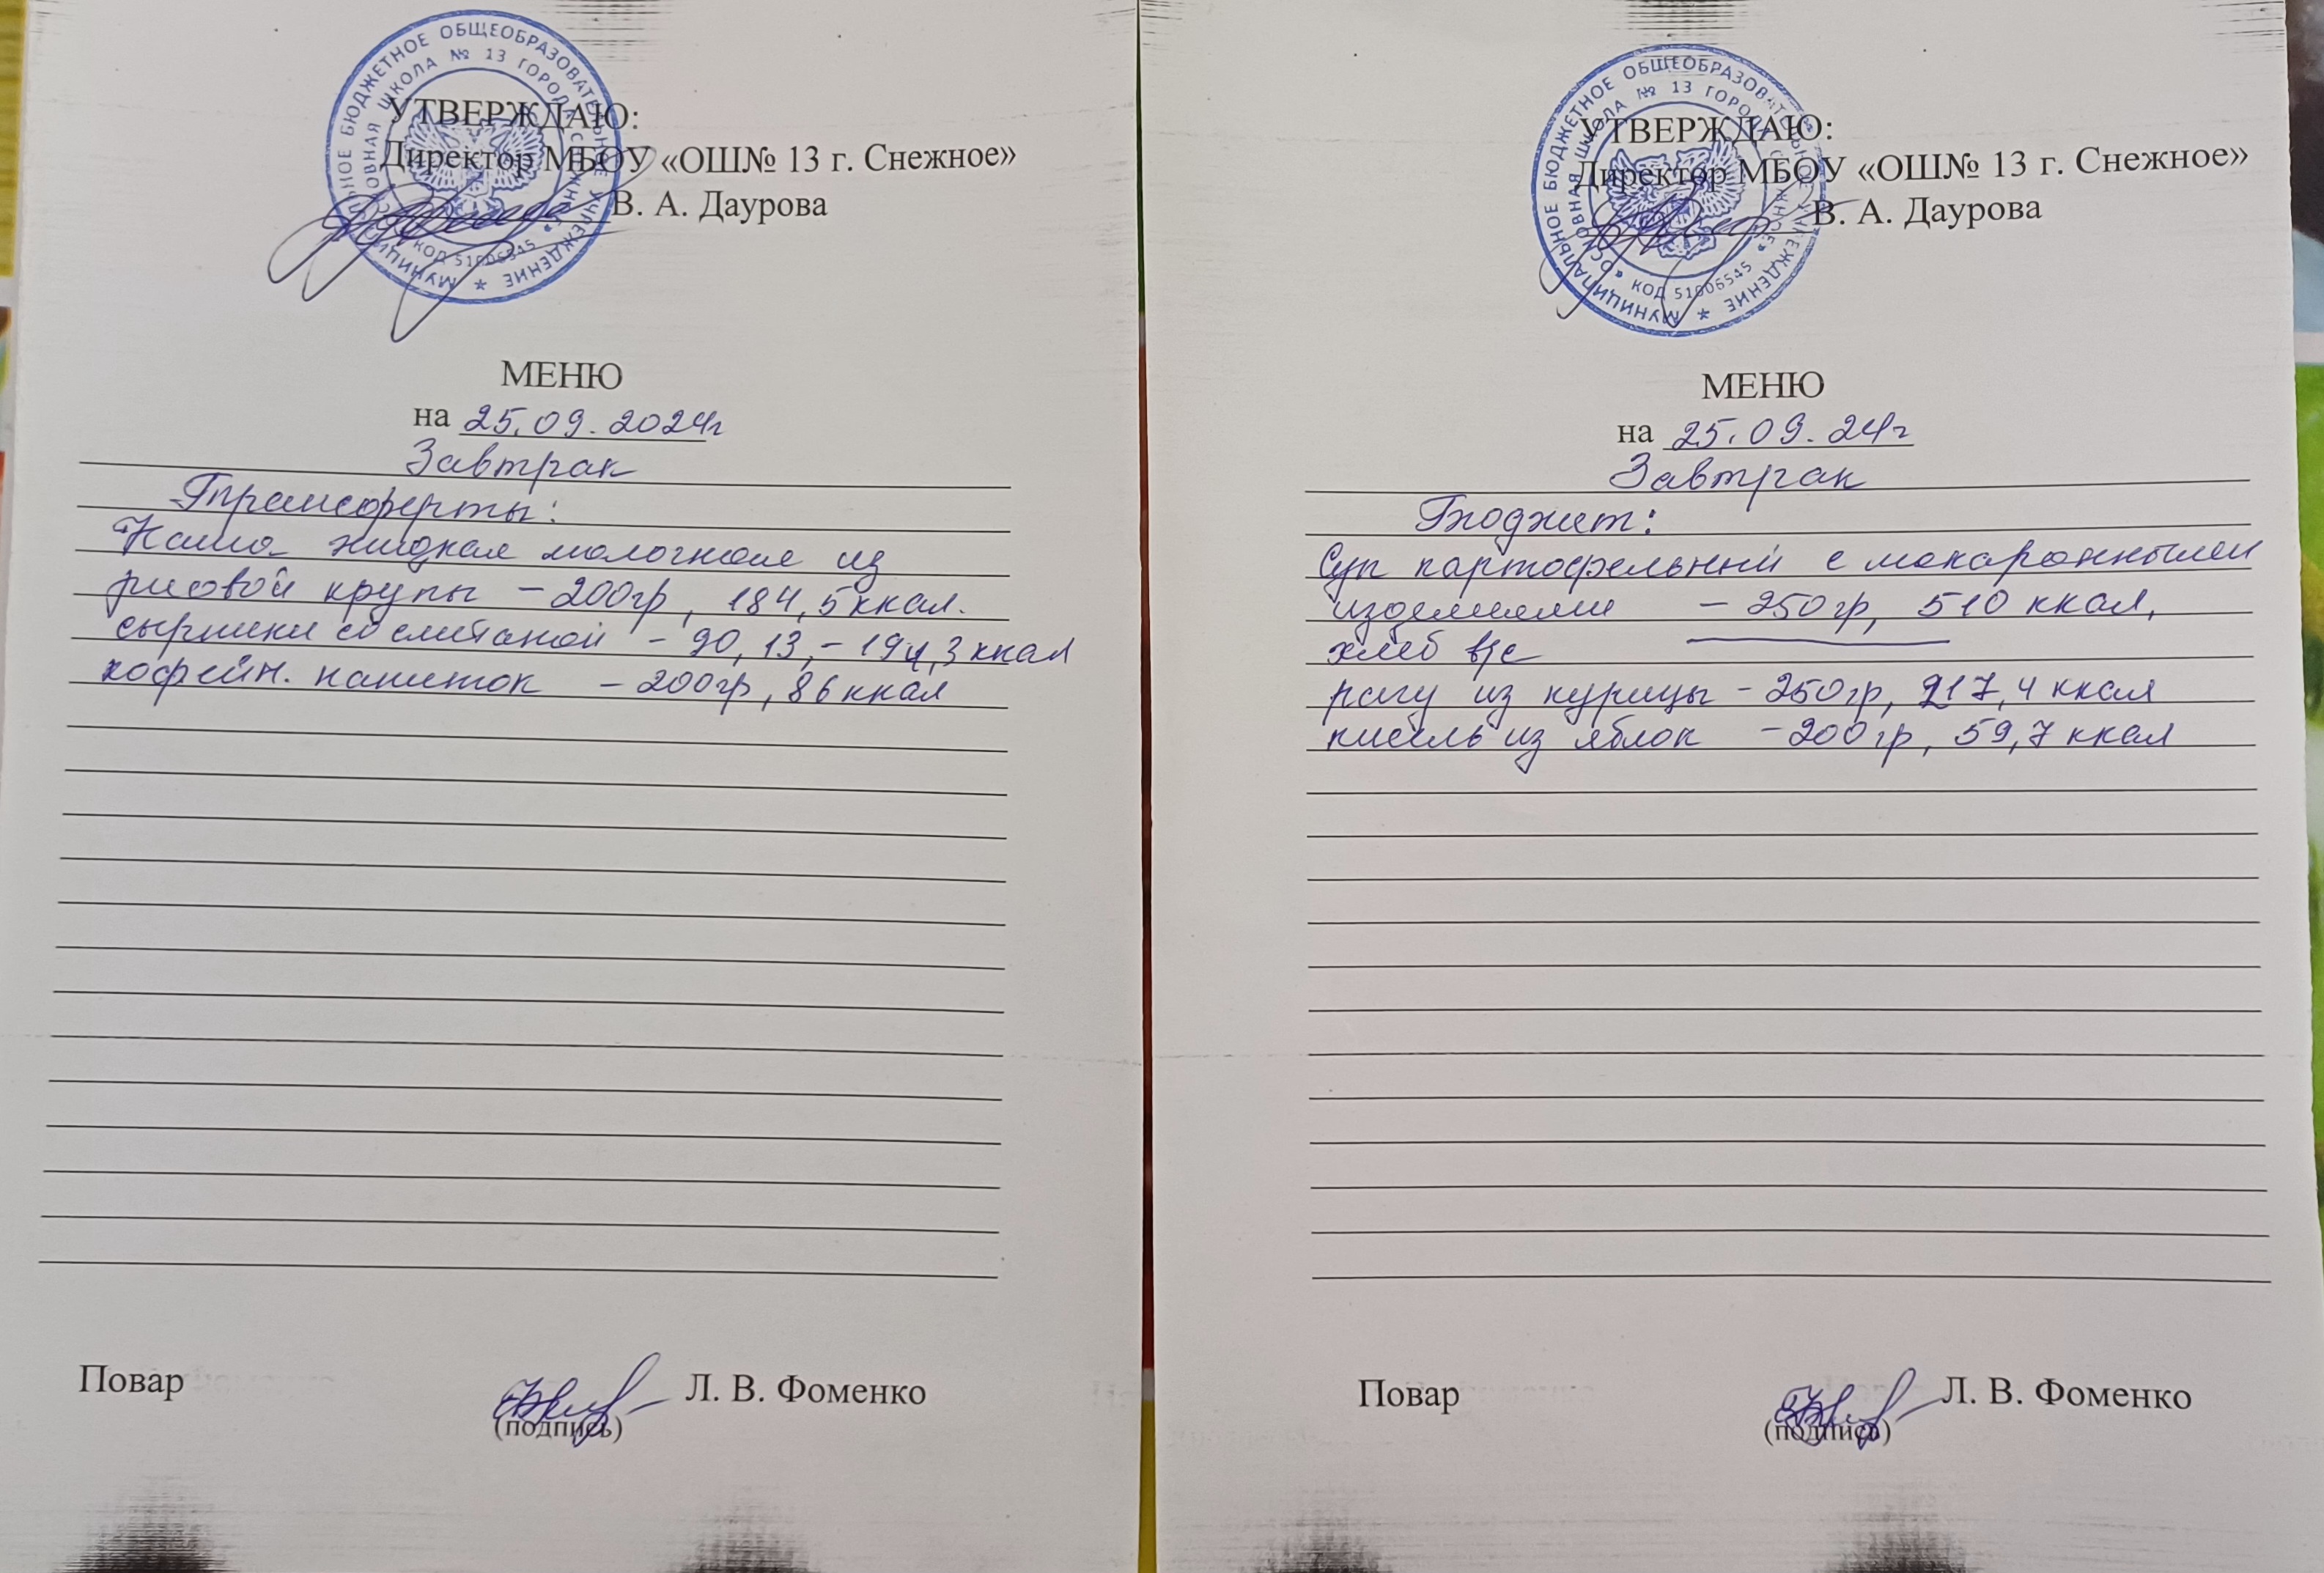 МУНИЦИПАЛЬНОЕ БЮДЖЕТНОЕ ОБЩЕОБРАЗОВАТЕЛЬНОЕ УЧРЕЖДЕНИЕ *
«ОСНОВНАЯ ШКОЛА № 13 ГОРОДА СНЕЖНОЕ»
КОД 51006545
УТВЕРЖДАЮ:
Директор МБОУ «ОШ№ 13 г. Снежное»
В. А. Даурова
МЕНЮ
на 25.09.2024г
Завтрак
Трансферты:
Каша жидкая молочная из
рисовой крупы – 200гр, 184,5 ккал.
сырники со сметаной – 90, 13, – 194,3 ккал
кофейн. напиток – 200гр, 86 ккал
Повар Л. В. Фоменко
(подпись)
МУНИЦИПАЛЬНОЕ БЮДЖЕТНОЕ ОБЩЕОБРАЗОВАТЕЛЬНОЕ УЧРЕЖДЕНИЕ *
«ОСНОВНАЯ ШКОЛА № 13 ГОРОДА СНЕЖНОЕ»
КОД 51006545
УТВЕРЖДАЮ:
Директор МБОУ «ОШ№ 13 г. Снежное»
В. А. Даурова
МЕНЮ
на 25.09.24г
Завтрак
Бюджет:
Суп картофельный с макаронными
изделиями – 250гр, 510 ккал,
хлеб в/с
рагу из курицы – 250гр, 217,4 ккал
кисель из яблок – 200гр, 59,7 ккал
Повар Л. В. Фоменко
(подпись)